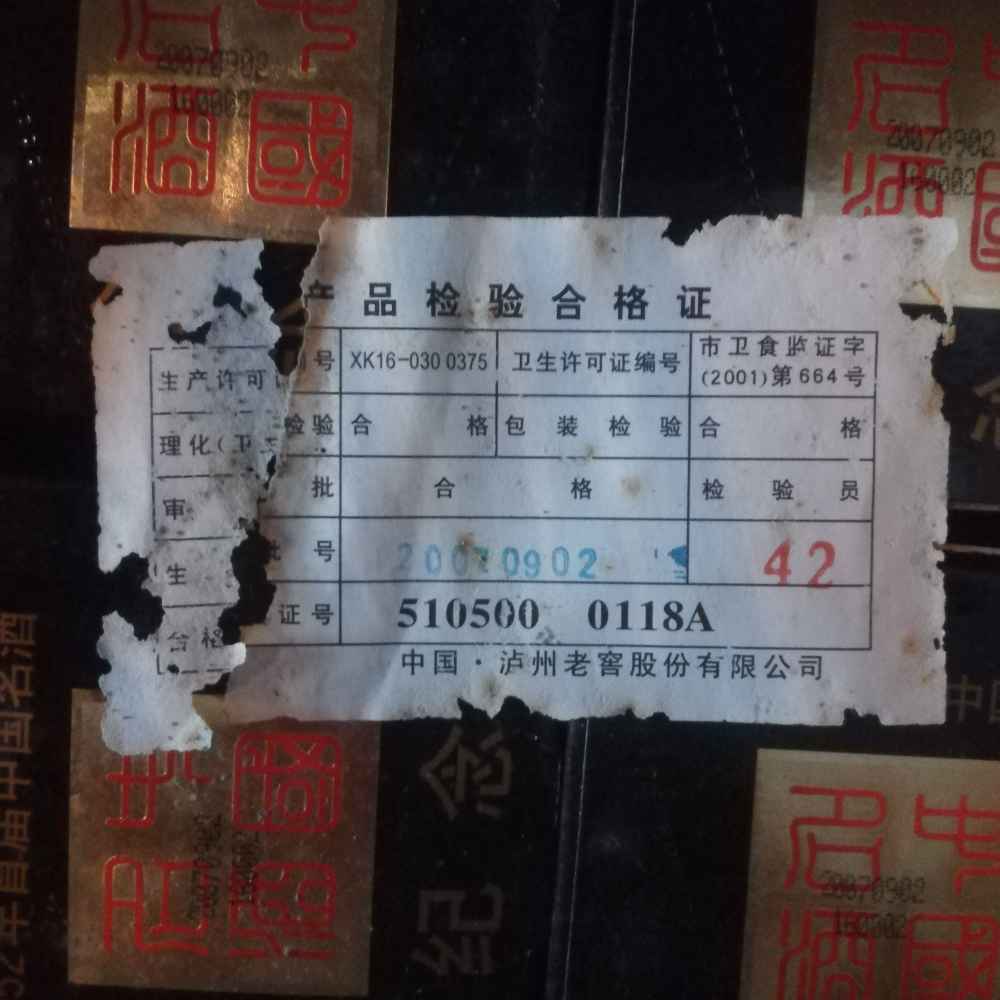 中
名
20070902
160002
國
酒
名
20070902
160002
國
酒
产品检验合格证
生产许可 号 XK16-030 0375 卫生许可证编号 市卫食监证字
(2001)第664号
理化(卫 检验 合格 包装检验 合格
审 批 合格 检验员
生 批号 20070902 42
合格证号 510500 0118A
中国·泸州老窖股份有限公司
52年首届中国名酒
纪念
中
國
名
酒
20070902
160002
中
名
20070902
160002
國
酒
中国